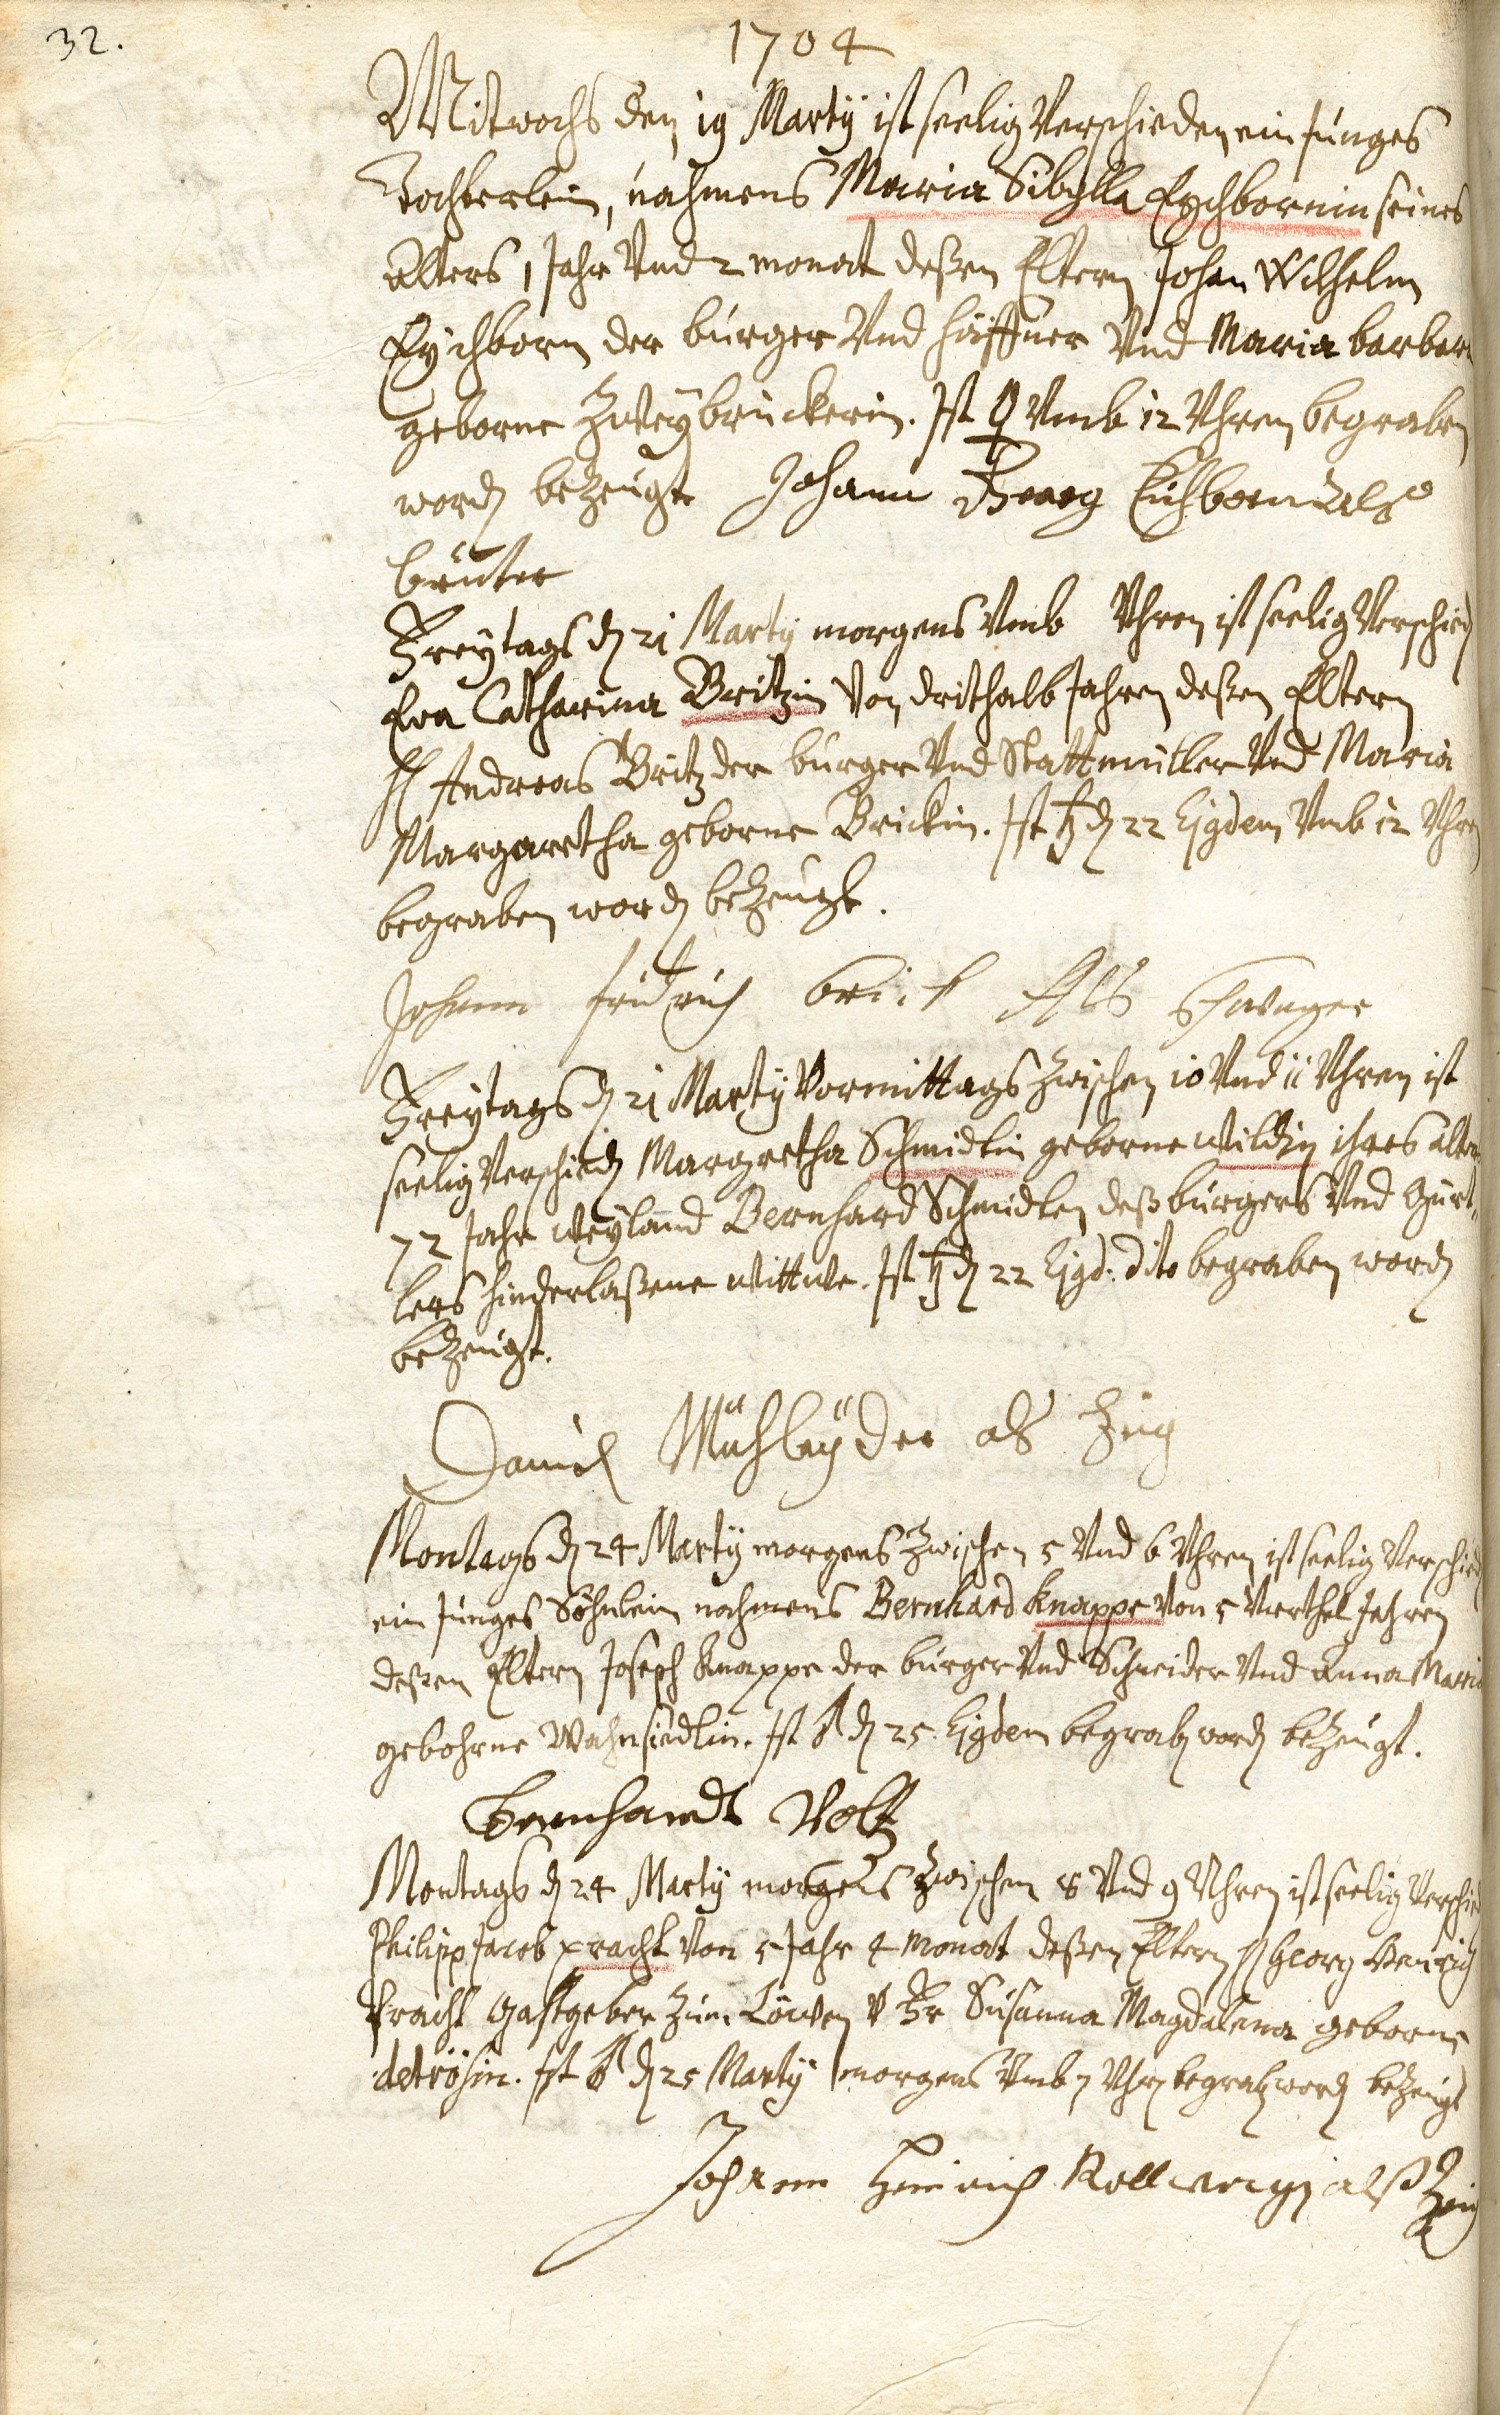 32.
1704
Mitwochs den 19 Martÿ ist seelig Verschieden ein junges
Töchterlein, nahmens Maria Sibylla Eychbornin seines
Alters 1 Jahr Vnd 2 monat deßen Eltern Johan Wilhelm
Eychborn der burger Vnd Häffner Vnd Maria barbara
geborne Zweybrückerin. Ist ♀ Vmb 12 Vhren begraben
word bezeugt Johann Georg Eichborn Alß
bruter
Freytags d 21 Martÿ morgens Vmb Vhren ist seelig Verschied
Eva Catharina Britzin Von drithalb Jahren deßen Eltern
H Andreas Britz der burger Vnd Stattmüller Vnd Maria
Margaretha geborne Brickin. Ist ♄ d 22 Ejgdem Vmb 12 Vhren
begraben word bezeugt.
Johann fridrich brick Als schwager
Freytags d 21 Martÿ Vormittags zwischen 10 Vnd 11 Vhren ist
seelig Verschied Margretha Schmidtin geborne Wildin ihres alters
72 Jahr weyland Bernhard Schmidlen deß burgers Vnd Gürt„
lers hinderlaßene Wittwe. Ist ♄ d 22 Ejgd: dito begraben word
bezeugt.
Daniel Mühleÿder als Zeug
Montags d 24 Martÿ morgens zwischen 5 Vnd 6 Vhren ist seelig Verschied
ein junges Söhnlein nahmens Bernhard Knappe Von 5 Vierthel Jahren
deßen Eltern Joseph Knappe der burger Vnd Schneider Vnd Anna Maria
gebohrne Wahnsiedlin. Ist ♂ d 25 Ejgdem begrab word bezeugt.
Bernhardt Voltz
Montags d 24 Martÿ morgens zwischen 8 Vnd 9 Vhren ist seelig Verschied
Philipp Jacob pracht Von 5 Jahr 4 Monat deßen Eltern H Georg Henrich
Pracht Gastgeber zum Löwen V Fr Susanna Magdalena geborne
detrösin. Ist ♂ d 25 Martÿ morgens Vmb 7 Vhr begrab word bezeugt
Johann Heinrich alß Zeug